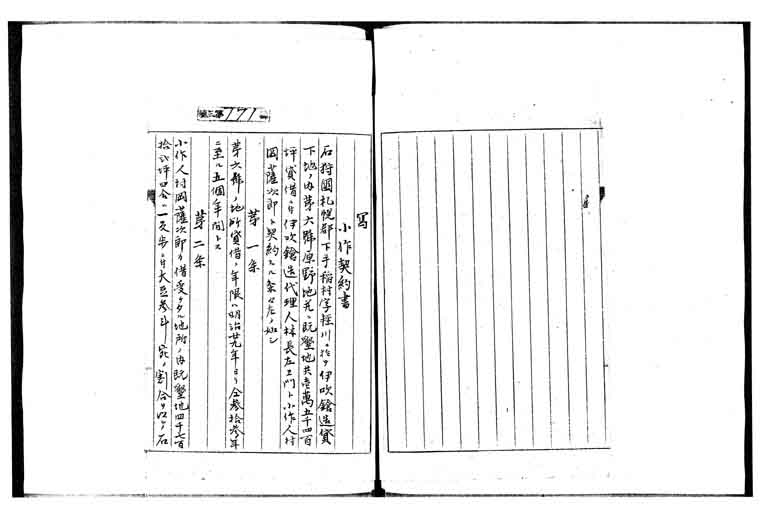 第三号 771
寫
小作契約書
石狩國札幌郡下手稲村字軽川ニ於テ伊吹鎗造貸
下地ノ内第六號原野地并ニ既墾地共壱萬五千四百
坪貸借ニ付伊吹鎗造代理人林長左エ門ト小作人村
岡薩次郎ト契約スル条々左ノ如シ
第一条
第六號ノ地所貸借ノ年限ハ明治廿九年ヨリ仝参拾参年
ニ至ル五個年間トス
第二条
小作人村岡薩次郎カ借受ケタル地所ノ内既墾地四千七百
拾弐坪四合ハ一反歩ニ付大豆参斗宛ノ割合ヲ以テ石